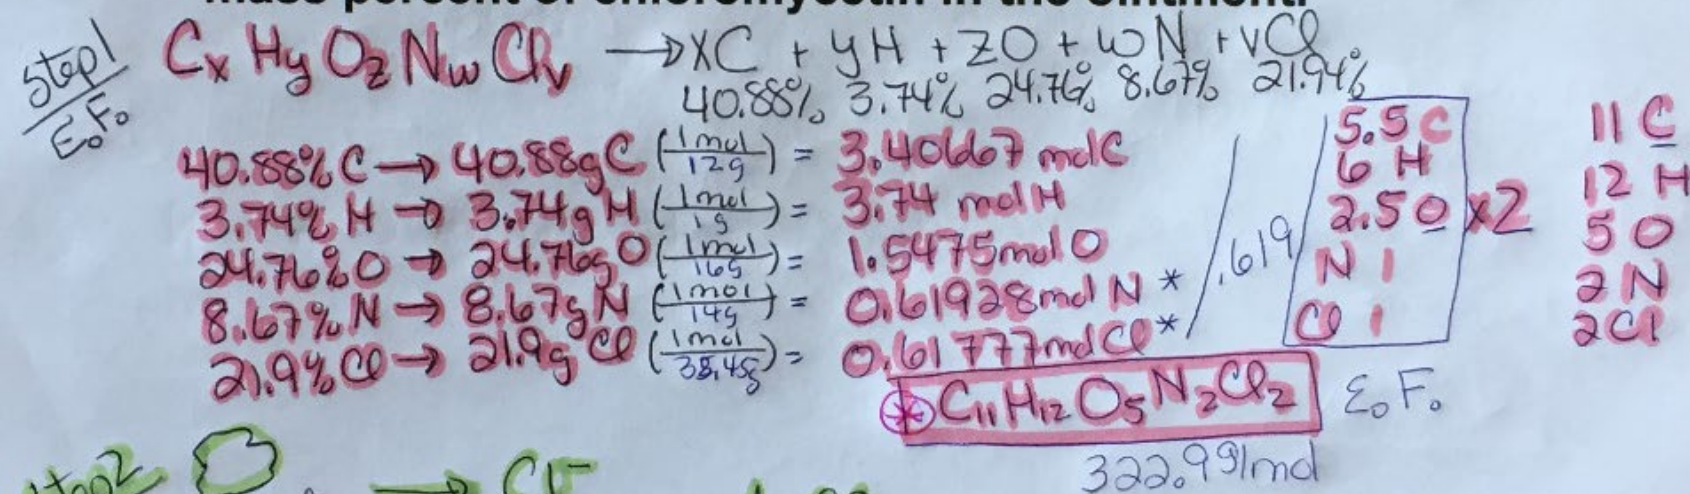 mass percent of chloromycetin in the ointment.
Step 1
E.F.
CxHyOzNwClv → xC + yH + zO + wN + vCl
40.88% 3.74% 24.76% 8.67% 21.94%
40.88% C → 40.88g C (1mol/12g) = 3.40667 mol C
3.74% H → 3.74g H (1mol/1g) = 3.74 mol H
24.76% O → 24.76g O (1mol/16g) = 1.5475 mol O
8.67% N → 8.67g N (1mol/14g) = 0.61928 mol N *
21.9% Cl → 21.9g Cl (1mol/35.45g) = 0.61777 mol Cl *
/.619
5.5 C
6 H
2.5 O
N 1
Cl 1
x2
11 C
12 H
5 O
2 N
2 Cl
* C11H12O5N2Cl2 E.F.
322.9 g/mol
Step 2
→ Cl⁻